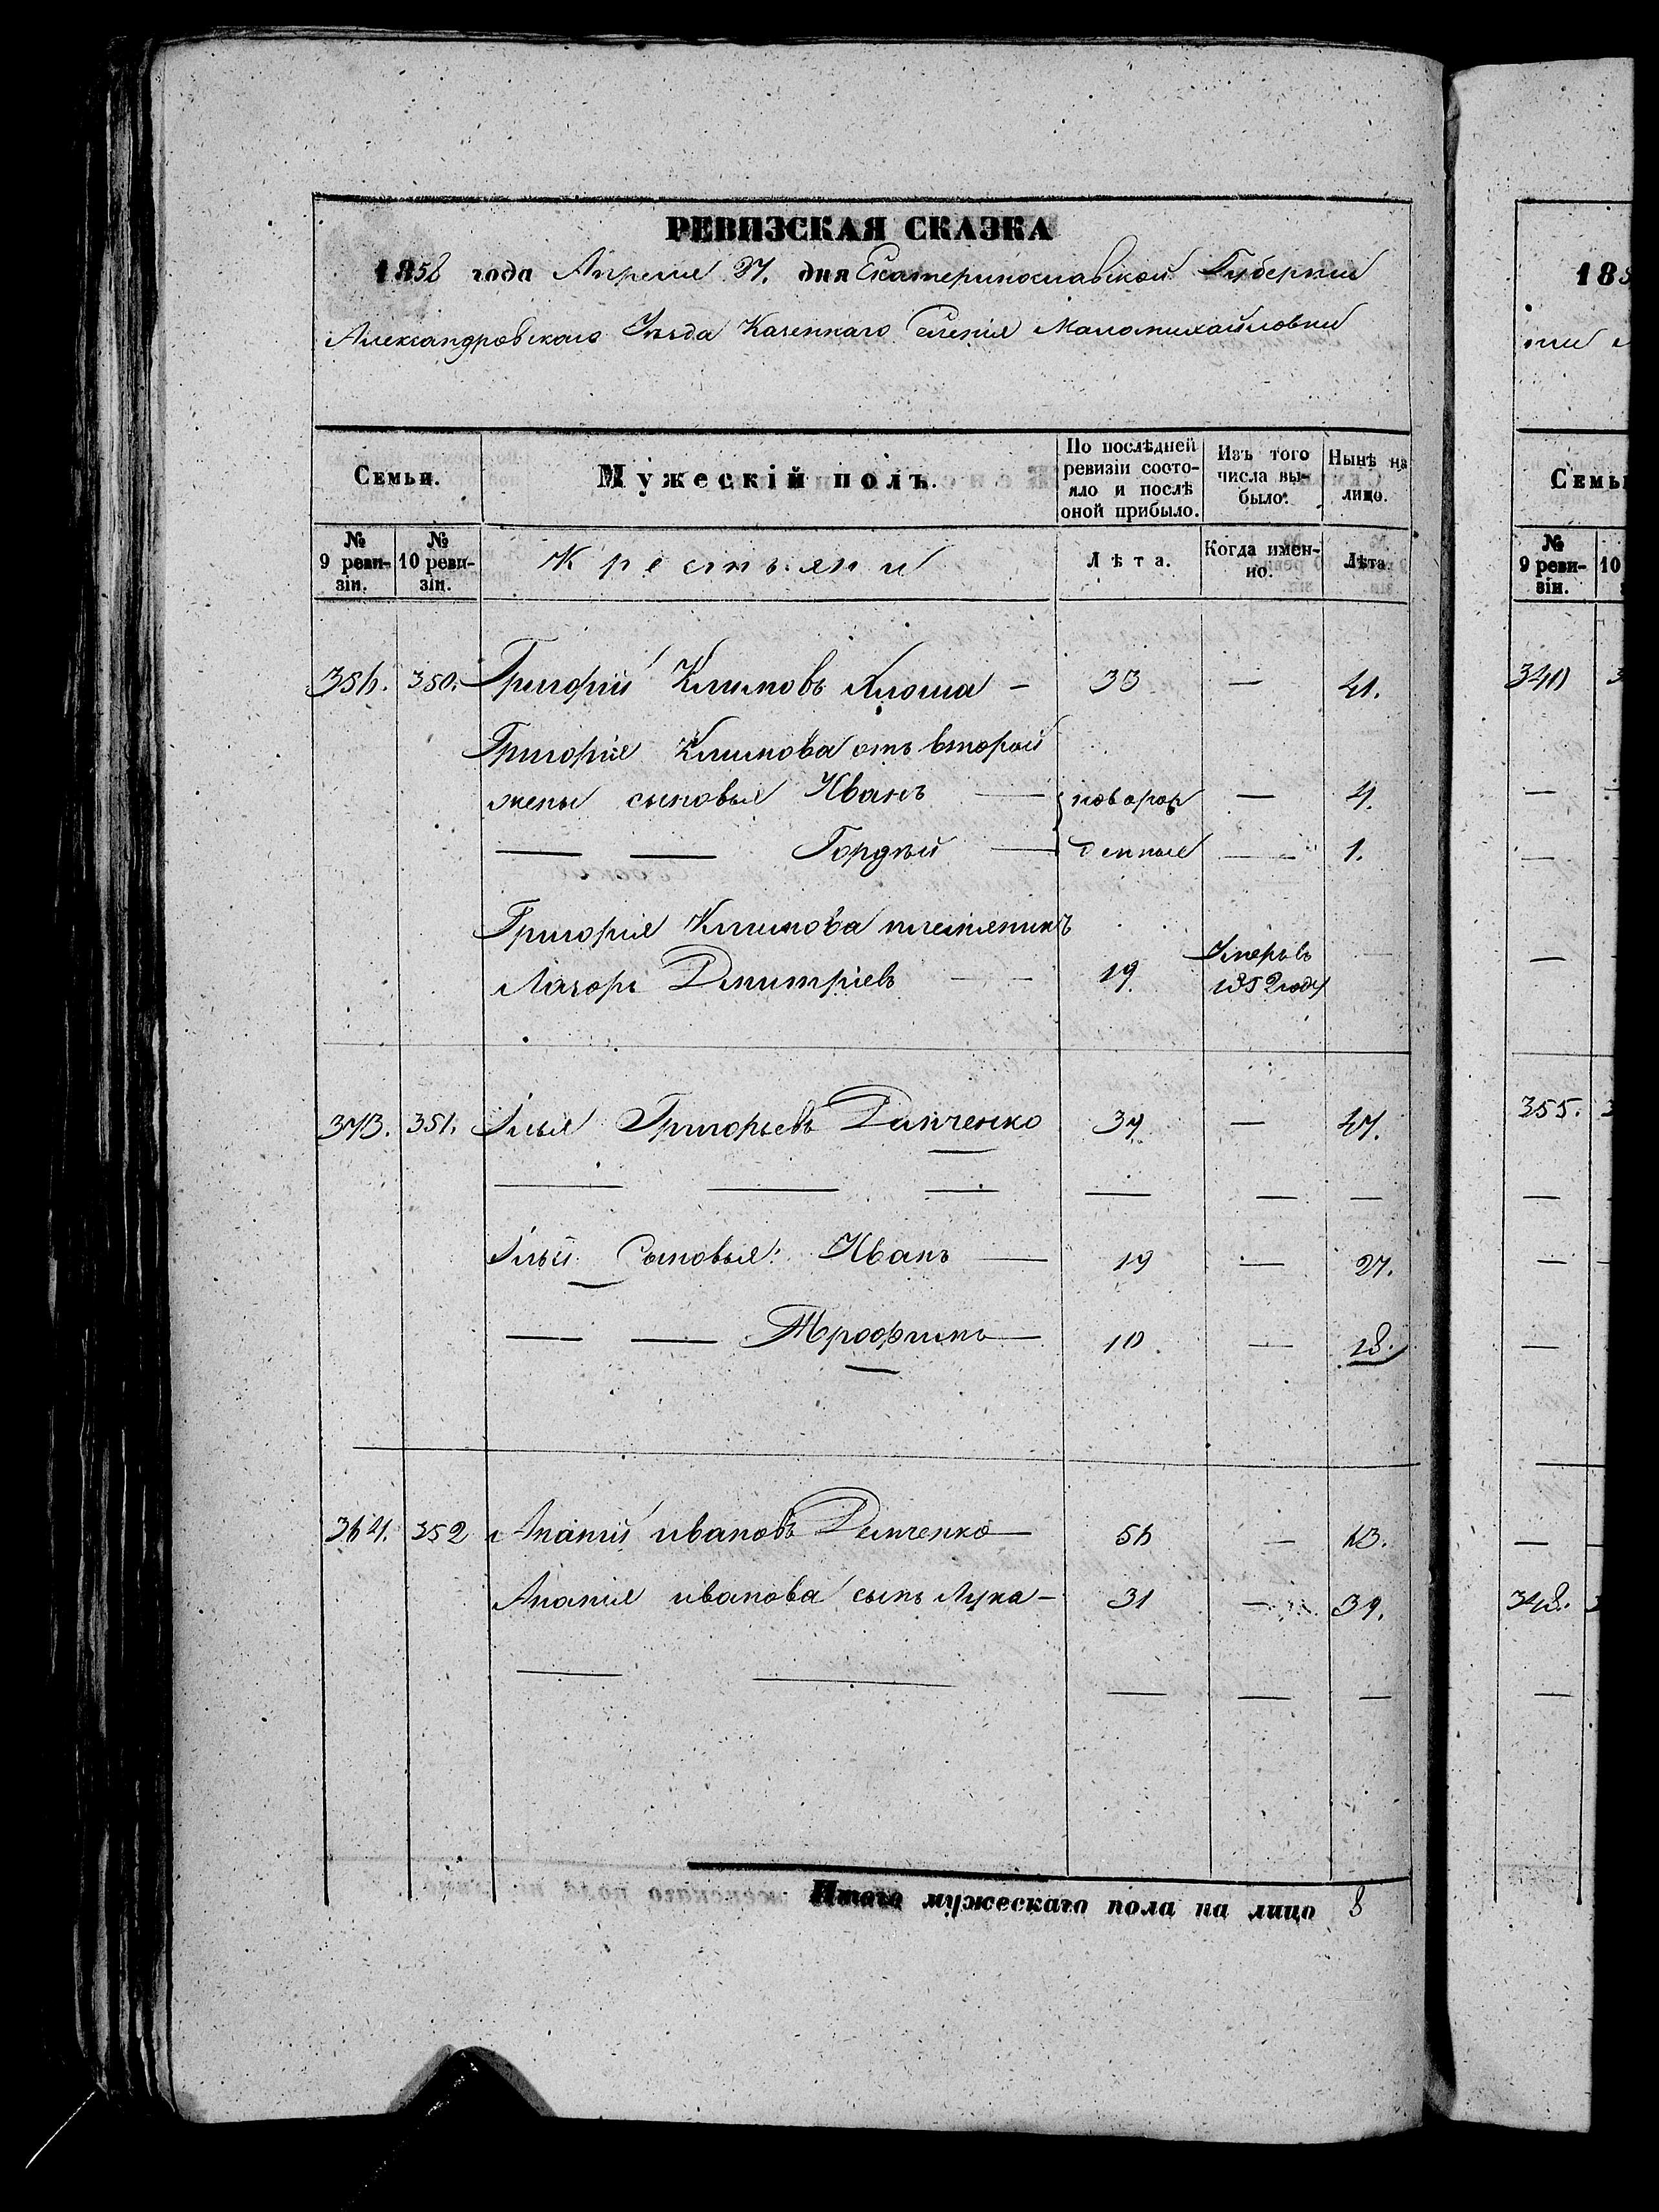 РЕВИЗСКАЯ СКАЗКА
1858 года Апреля 27. дня Екатеринославской Губернии
Александровскаго Уезда Казеннаго Селенія Маломихайловки
Семьи.
Мужескій полъ.
По послѣдней ревизіи состо-
яло и послѣ
оной прибыло.
Изъ того
числа вы-
было.
Нынѣ на
лицо.
№
9 реви-
зіи.
№
10 реви-
зіи.
Крестьяни
Лѣта.
Когда имен-
но.
Лѣта.
356. 350. Григорій Климовъ Клюша — 33 — 41.
Григорія Климова отъ второй
жены сыновья Иванъ — новорож — 4.
— — Гордѣй — денные — 1.
Григорія Климова племяникъ
Лазорь Дмитріевъ — 19 Умеръ въ
1852 году
373. 351. Илья Григорьевъ Демченко 39 — 47.
— — — — — —
Ильи Сыновья: Иванъ — 19 — 27.
— — Трофимъ — 10 — 18.
364. 352 Ананій ивановъ Демченко — 56 — 63.
Ананія иванова сынъ Лука — 31 — 39.
— — — — —
Итого мужескаго пола на лицо 8
185
Семьи
№
9 реви-
зіи.
10
340
355.
348.